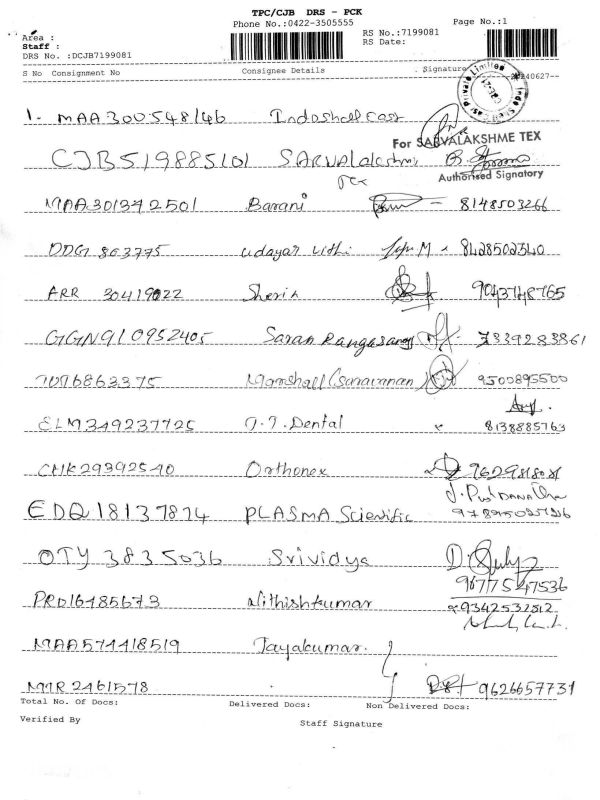 TPC/CJB DRS - PCK
Phone No.:0422-3505555 Page No.:1
Area : RS No.:7199081
Staff : RS Date:
DRS No. :DCJB7199081
S No Consignment No Consignee Details Signature 20240627--
1. MAA300548146 Indoshell Cast
For SARVALAKSHME TEX
CJB519885101 SARVALakshmi
Tex Authorised Signatory
MAA301342501 Barani 8148503266
DDG 863775 Udayar 8428502340
ARR 30419022 Sherin 9043748765
GGN910952405 Saran Rangasamy 7339283861
7076863375 Marshall (Saravanan) 9500895500
ELM349237725 J.J. Dental 8138885763
CHK29392540 Orthonex
EDQ18137874 PLASMA Scientific
OTY 3835036 Srividya
9677547536
PRD16485673 Nithishkumar 9342532512
MAA574418519 Jayakumar.
MTR2461578 9626657731
Total No. Of Docs: Delivered Docs: Non Delivered Docs:
Verified By Staff Signature